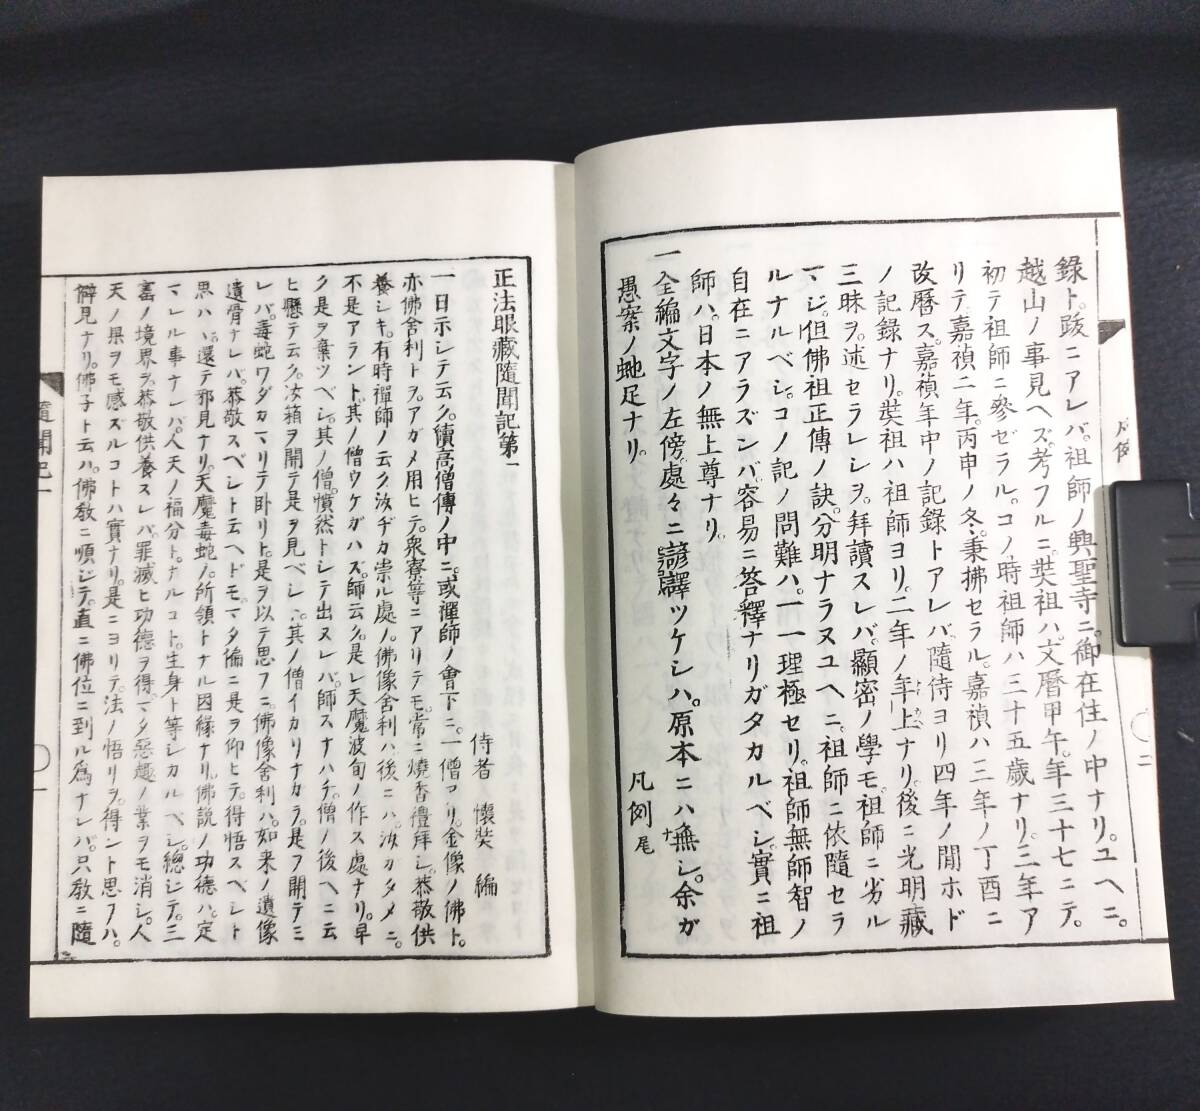 凡例
二
錄ト。跋ニアレバ。祖師ノ興聖寺ニ。御在住ノ中ナリ。ユヘニ。
越山ノ事見ヘズ。考フルニ。奘祖ハ。文曆甲午。年三十七ニテ。
初テ祖師ニ參ゼラル。コノ時祖師ハ三十五歲ナリ。三年ア
リテ。嘉禎二年。丙申ノ冬。秉拂セラル。嘉禎ハ三年ノ丁酉ニ
改曆ス。嘉禎年中ノ記錄トアレバ。隨侍ヨリ四年ノ閒ホド
ノ記錄ナリ。奘祖ハ祖師ヨリ。二年ノ年上ナリ。後ニ光明藏
三昧ヲ。述セラレシヲ。拜讀スレバ。顯密ノ學モ。祖師ニ劣ル
マジ。但佛祖正傳ノ訣。分明ナラヌユヘニ。祖師ニ依隨セラ
ルナルベシ。コノ記ノ問難ハ。一一理極セリ。祖師無師智ノ
自在ニアラズンバ。容易ニ答釋ナリガタカルベシ。實ニ祖
師ハ。日本ノ無上尊ナリ。
一全編文字ノ左傍。處々ニ諺譯ツケシハ。原本ニハ無シ。余ガ
愚案ノ虵足ナリ。
凡例尾
正法眼藏隨聞記第一
侍者 懷奘 編
一日示シテ云ク。續高僧傳ノ中ニ。或禪師ノ會下ニ。一僧アリ。金像ノ佛ト。
亦佛舍利トヲ。アガメ用ヒテ。衆寮等ニアリテモ。常ニ燒香禮拜シ。恭敬供
養シキ。有時禪師ノ云ク。汝ヂカ崇ル處ノ。佛像舍利ハ。後ニハ。汝ガタメニ。
不是アラント。其ノ僧ウケガハズ。師云ク。是レ天魔波旬ノ作ス處ナリ。早
ク是ヲ棄ツベシ。其ノ僧憤然トシテ出ヌレバ。師スナハチ。僧ノ後ヘニ云
ヒ懸テ云ク。汝箱ヲ開テ是ヲ見ベシト。其ノ僧イカリナカラ。是ヲ開テミ
レバ。毒蛇ワダカマリテ臥リト。是ヲ以テ思フニ。佛像舍利ハ。如來ノ遺像
遺骨ナレバ。恭敬スベシト云ヘドモ。マタ偏ニ是ヲ仰ヒテ。得悟スベシト
思ハヾ。還テ邪見ナリ。天魔毒蛇ノ。所領トナル因緣ナリ。佛說ノ功德ハ。定
マレル事ナレバ。人天ノ福分ト。ナルコト。生身ト等シカルベシ。總ジテ。三
寳ノ境界ヲ。恭敬供養スレバ。罪滅ヒ功德ヲ得。マタ惡趣ノ業ヲモ消シ。人
天ノ果ヲモ感ズルコトハ。實ナリ。是ニヨリテ。法ノ悟リヲ。得ント思フハ。
僻見ナリ。佛子ト云ハ。佛敎ニ順ジテ。直ニ佛位ニ到ル爲ナレバ。只敎ニ隨
隨聞記一
一